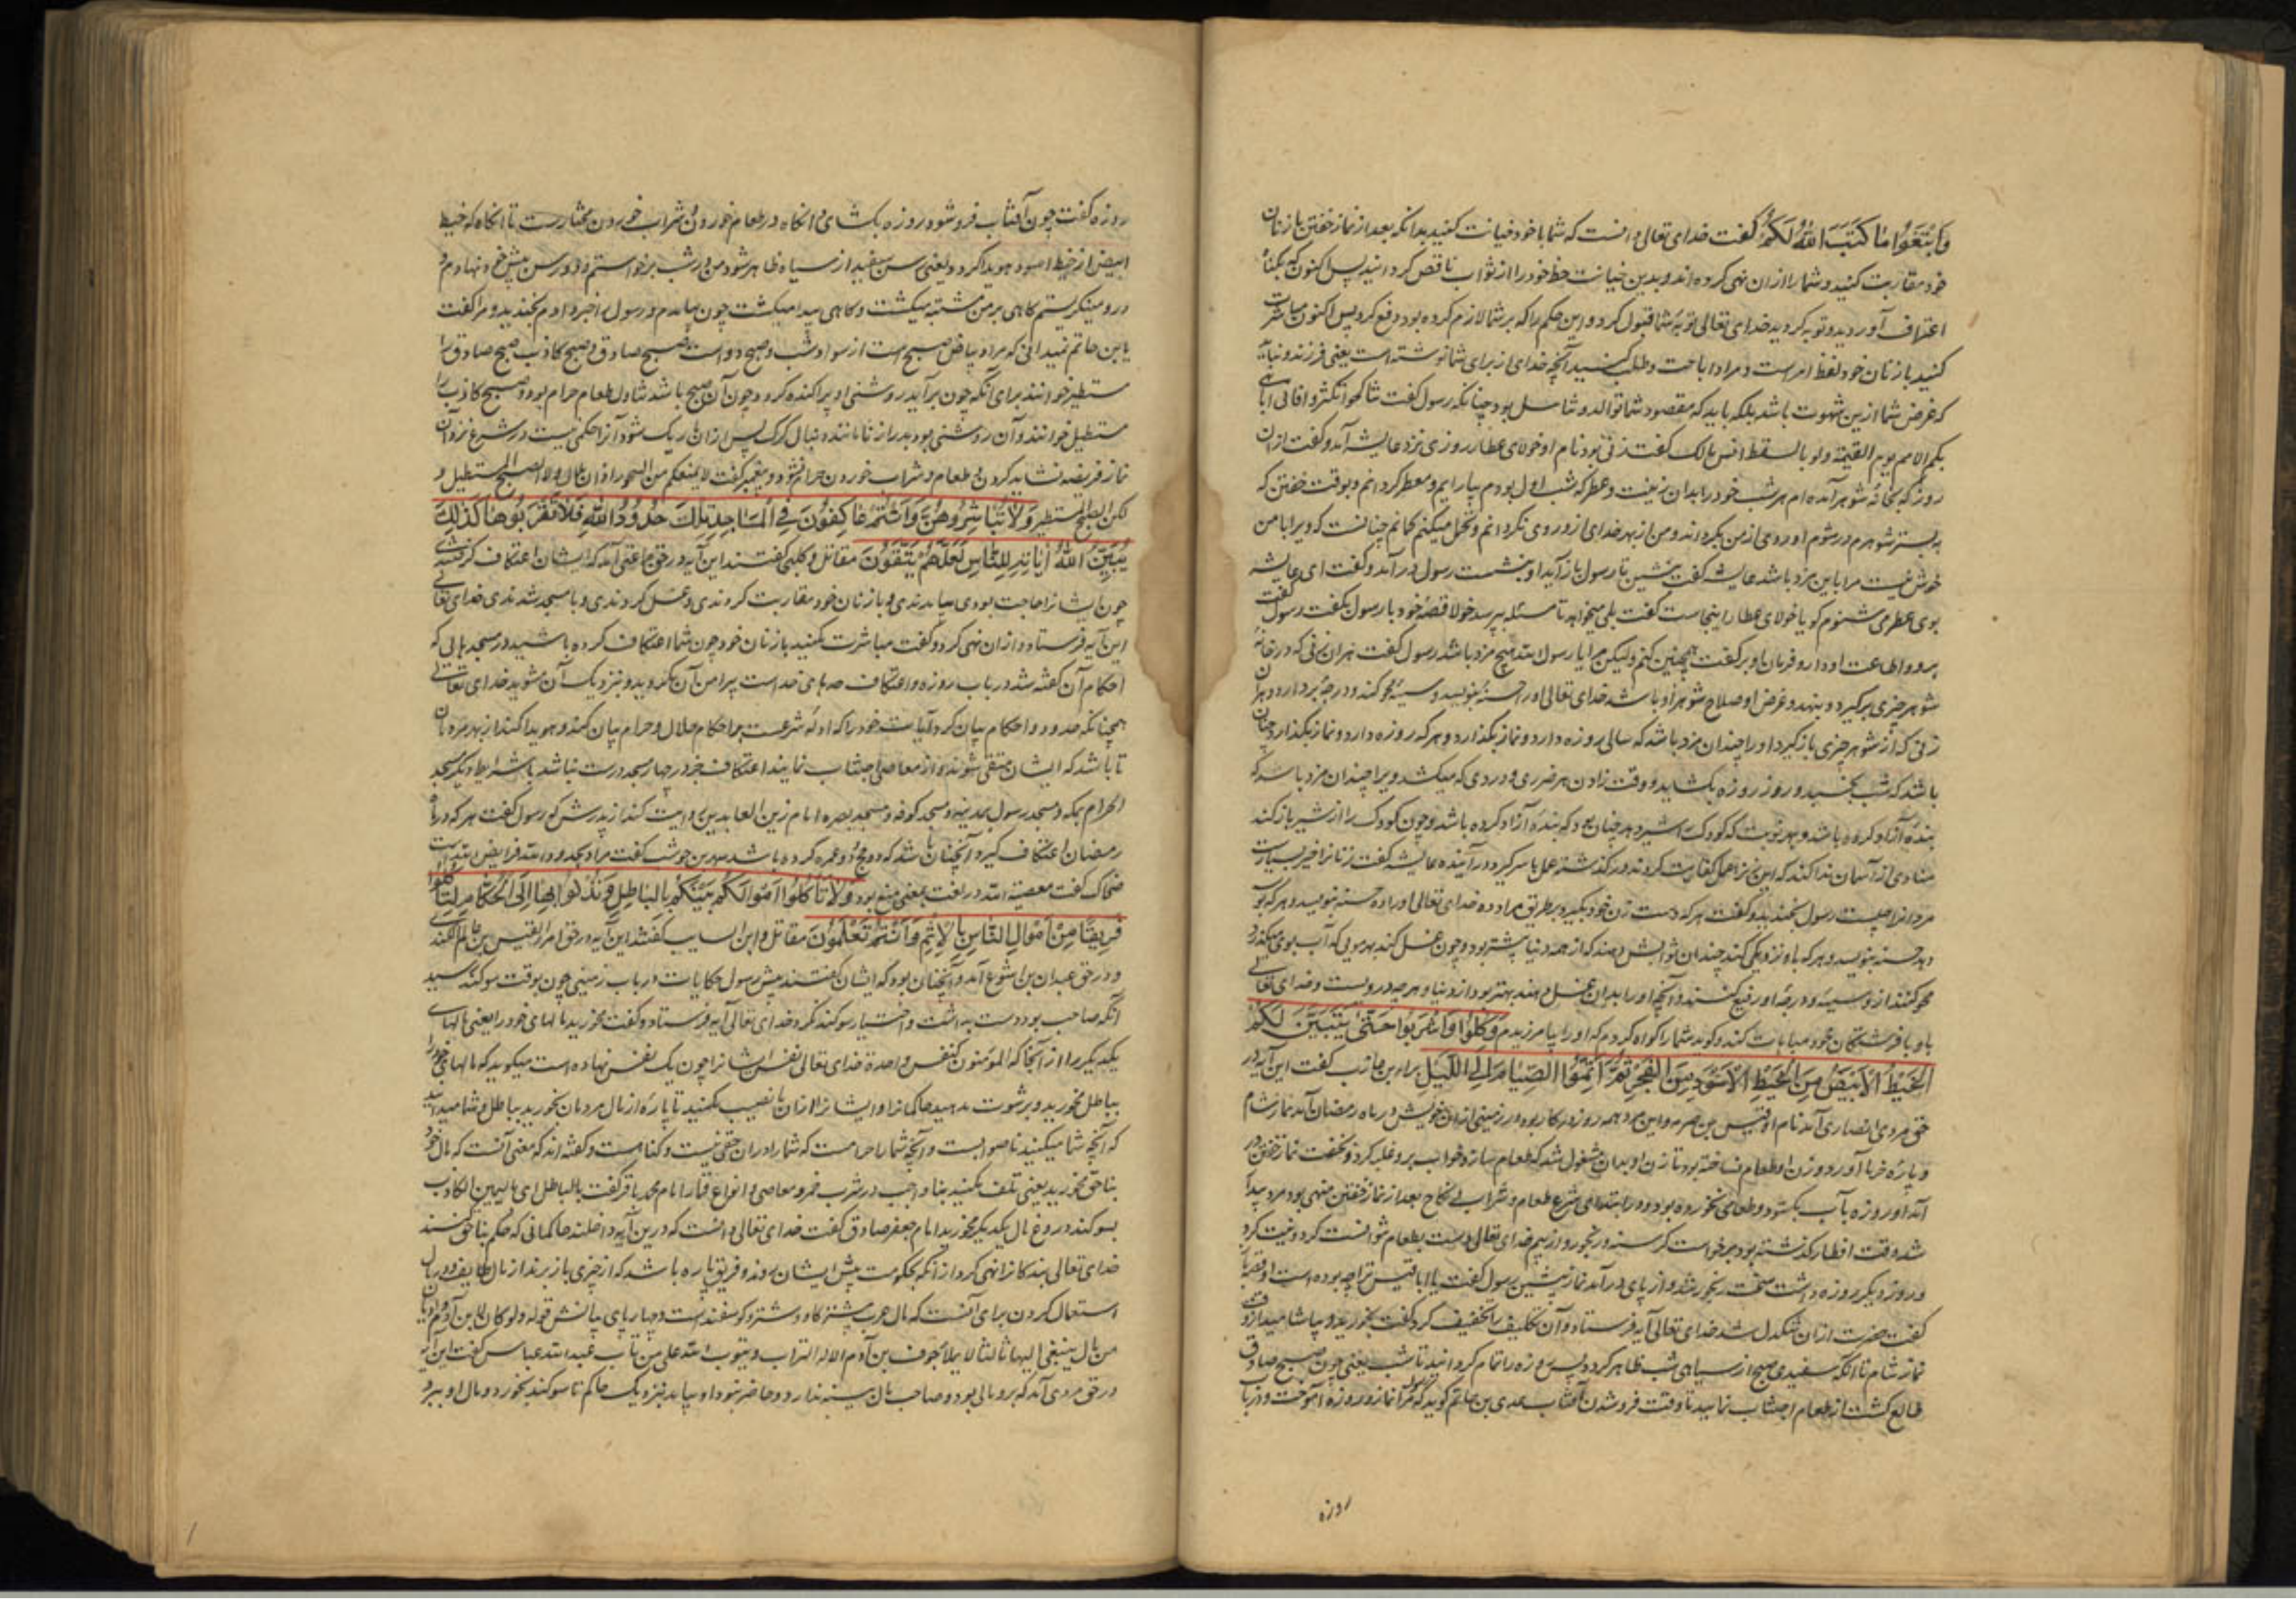 وَابْتَغُوا مَا كَتَبَ اللَّهُ لَكُمْ گفت خدای تعالی دانست که شما با خود خیانت کنید بدانکه بعد از نماز خفتن با زنان
خود مقاربت کنید و شما را از ان نهی کرده اند و بدین خیانت حظ خود را از ثواب ناقص کردانید پس اکنون که بکناه
اعتراف آوردید و توبه کردید خدای تعالی توبهٔ شما قبول کرد و این حکم را که بر شما لازم کرده بود رفع کرد پس اکنون مباشرت
کنید با زنان خود لفظ امر است و مراد اباحت و طلب کنید آنچه خدای از برای شما نوشته است یعنی فرزند و نباید
که غرض شما ازین شهوت باشد بلکه باید که مقصود شما توالد و تناسل بود چنانکه رسول گفت تناکحوا تکثروا فانی اباهی
بکم الامم یوم القیمة ولو بالسقط انس مالک گفت زنی بود نام او خولای عطار روزی نزد عایشه آمد و گفت از ان
روز که بخانهٔ شوهر آمده ام هر شب خود را بدان زینت و عطر که شب اول بودم بیارایم و معطر کردانم و بوقت خفتن که
به بستر شوهرم درشوم او روی از من بکرداند و من از بهر خدای ازو روی نکردانم و تحمل میکنم کمانم چنانست که ویرا با من
خوش نیست مرا باین مزد باشد عایشه گفت بنشین تا رسول بازآید او بنشست رسول درآمد و گفت ای عایشه
بوی عطر می شنوم کویا خولای عطار اینجاست گفت بلی میخواهد تا مسئله بپرسد خولا قصهٔ خود با رسول بگفت رسول گفت
برو و اطاعت او دار و فرمان او بر گفت همچنین کنم ولیکن مرا یا رسول الله هیچ مزد باشد رسول گفت هر ان زنی که در خانهٔ
شوهر چیزی برگیرد و بنهد و غرض او صلاح شوهر او باشد خدای تعالی او را حسنه بنویسد و سیئه محو کند و درجه بردارد و هر ان
زنی که از شوهر چیزی باز گیرد او را چندان مزد باشد که سالی روزه دارد و نماز بگذارد و هر که روزه دارد و نماز بگذارد چنان
باشد که شب نخسبد و روز روزه بگشاید و وقت زادن هر ضربی و دردی که میکشد ویرا چندان مزد باشد که
بندهٔ آزاد کرده باشد و بهر نوبت که کودک را شیر دهد چنان بود که بندهٔ آزاد کرده باشد و چون کودک را از شیر باز کند
منادی از آسمان ندا کند که این زن را عمل کفایت کردند در گذشته عمل با سر گیرد در آینده عایشه گفت زنان را خیر بسیارست
مردان را چیست رسول بخندید و گفت هر که دست زن خود بگیرد بطریق مراوده خدای تعالی او را ده حسنه بنویسد و هر که بوسه
دهد حسنه بنویسد و هر که با او نزدیکی کند چندان ثوابش دهند که از همه دنیا بیشتر بود و چون غسل کند بهر مویی که آب بوی میگذرد
محو کنند ازو سیئه و درجهٔ او رفیع کنند و آنچه او را بدان غسل دهند بهتر بود از دنیا و هر چه دروست و خدای تعالی
باو با فرشتگان خود مباهات کند و کوید شما را کواه کردم که او را بیامرزیدم وَكُلُوا وَاشْرَبُوا حَتَّى يَتَبَيَّنَ لَكُمُ
الْخَيْطُ الْأَبْيَضُ مِنَ الْخَيْطِ الْأَسْوَدِ مِنَ الْفَجْرِ ثُمَّ أَتِمُّوا الصِّيَامَ إِلَى اللَّيْلِ براء بن عازب گفت این آیه در
حق مردی انصاری آمد نام او قیس بن صرمه و این مرد همه روز در کار بود در زمینی از ان خویش در ماه رمضان آمد نماز شام
و پارهٔ خرما آورد و زن او طعام نساخته بود تا زن او بدان مشغول شد که طعام سازد خواب برو غلبه کرد و نخفت نماز خفتن در
آمد او روزه بآب بکشود و طعامی نخورده بود و در ابتدای شرع طعام و شراب بی نکاح بعد از نماز خفتن منهی بود مرد بیدار
شد وقت افطار بکذشته بود برخواست کرسنه و رنجور و از بیم خدای تعالی دست بطعام نتوانست کرد و نیت کرد
و روز دیگر روزه داشت سخت رنجور شد و از پای درآمد نماز پیشین رسول گفت یا اباقیس ترا چه بوده است او قصه با
گفت حضرت از ان تنکدل شد خدای تعالی آیه فرستاد و آن تکلیف را تخفیف کرد گفت بخورید و بیاشامید از وقت
نماز شام تا انکه سفیدی صبح از سیاهی شب ظاهر گردد پس روزه را تمام کردانید تا شب یعنی چون صبح صادق
طالع کشت از طعام اجتناب نمایید تا وقت فروشدن آفتاب عدی بن حاتم کوید که رسول مرا نماز و روزه آموخت و در باب
روزه
روزه گفت چون آفتاب فروشود روزه بکشای و انکاه در طعام خوردن و شراب خوردن مختارست تا انکاه که خیط
ابیض از خیط اسود هویدا گردد یعنی رسن سفید از سیاه ظاهر شود من در شب برخواستم و دو رسن پیش خود نهادم و
درو مینکریستم کاهی بر من مشتبه میکشت و کاهی پیدا میکشت چون بیامدم و رسول را خبر دادم بخندید و مرا گفت
یابن حاتم نمیدانی که مراد بیاض صبح است از سواد شب و صبح دو است صبح صادق و صبح کاذب صبح صادق را
مستطیر خوانند برای آنکه چون برآید روشنی او پراکنده گردد و چون آن صبح باشد تناول طعام حرام بود و صبح کاذب را
مستطیل خوانند و آن روشنی بود بدراز تا ماننده دنبال کرک پس از ان تاریک شود آنرا حکمی نیست در شرع نزد آن
نماز فریضه نشاید کردن و طعام و شراب خوردن حرام نشود و پیغمبر گفت لا یمنعکم من السحور اذان بلال ولا الصبح المستطیل و
لکن الصبح المستطیر وَلَا تُبَاشِرُوهُنَّ وَأَنْتُمْ عَاكِفُونَ فِي الْمَسَاجِدِ تِلْكَ حُدُودُ اللَّهِ فَلَا تَقْرَبُوهَا كَذَلِكَ
يُبَيِّنُ اللَّهُ آيَاتِهِ لِلنَّاسِ لَعَلَّهُمْ يَتَّقُونَ مقاتل و کلبی گفتند این آیه در حق جماعتی آمد که ایشان اعتکاف گرفتندی
چون ایشانرا حاجت بودی بیامدندی و با زنان خود مقاربت کردندی و غسل کردندی و با مسجد شدندی خدای تعالی
این آیه فرستاد و از ان نهی کرد و گفت مباشرت مکنید با زنان خود چون شما اعتکاف کرده باشید در مسجدهایی که
احکام آن گفته شد در باب روزه و اعتکاف حدهای خداست پیرامن آن مکردید و نزدیک آن مشوید خدای تعالی
همچنانکه حدود و احکام بیان کرد آیات خود را که ادلهٔ شرعست بر احکام حلال و حرام بیان کند و هویدا کند از بهر مردمان
تا باشد که ایشان متقی شوند و از معاصی اجتناب نمایند اعتکاف جز در چهار مسجد درست نباشد با شرایط دیگر مسجد
الحرام بمکه و مسجد رسول بمدینه و مسجد کوفه و مسجد بصره امام زین العابدین روایت کند از پدرش که رسول گفت هر که در ماه
رمضان اعتکاف گیرد آنچنان باشد که دو حج و دو عمره گرده باشد شهر بن حوشب گفت مراد بحدود الله فرایض الله است
ضحاک گفت معصیة الله در لغت بمعنی منع بود وَلَا تَأْكُلُوا أَمْوَالَكُمْ بَيْنَكُمْ بِالْبَاطِلِ وَتُدْلُوا بِهَا إِلَى الْحُكَّامِ لِتَأْكُلُوا
فَرِيقًا مِنْ أَمْوَالِ النَّاسِ بِالْإِثْمِ وَأَنْتُمْ تَعْلَمُونَ مقاتل و ابن السایب گفتند این آیه در حق امرالقیس بن عابس الکندی
و در حق عبدان بن اشوع آمد و آنچنان بود که ایشان گفتند پیش رسول حکایات در باب زمینی چون بوقت سوکند رسید
آنکه صاحب بود دست بداشت و اختیار سوکند نکرد خدای تعالی آیه فرستاد و گفت مخورید مالهای خود را یعنی مالهای
یکدیگر را از آنجا که المؤمنون کنفس واحدة خدای تعالی نفس ایشانرا چون یک نفس نهاده است میکوید که مالهای خود را
بباطل مخورید و برشوت مدهید حاکمانرا و ایشانرا از ان با نصیب مکنید تا پارهٔ از مال مردمان بخورید بباطل و شما میدانید
که آنچه شما میکنید ناصوابست و آنچه شما راحرامست که شما را در ان حقی نیست و کناهست و گفته اند که معنی آنست که مال خود
بناحق مخورید یعنی تلف مکنید بناواجب در شرب خمر و معاصی و انواع قمار امام محمد باقر گفت بالباطل ای بالیمین الکاذب
بسوکند دروغ مال یکدیگر مخورید امام جعفر صادق گفت خدای تعالی دانست که درین آیه داخلند حاکمانی که حکم بناحق کنند
خدای تعالی بندکانرا نهی کرد از انکه بحکومت پیش ایشان روند و فریق پاره باشد که از چیزی باز برند از مال طایف و در مال
استعمال کردن برای آنست که مال عرب بیشتر کاو و شتر و کوسفند است و چهارپای بیانش قوله ولو کان لابن آدم وادیان
من مال ینبغی الیهما ثالثا لا یملأ جوف بن آدم الا له التراب و یتوب الله علی من تاب عبد الله عباس گفت این آیه
در حق مردی آمد که برو مالی بود و صاحب مال بینه ندارد و حاضر نبود او بیاید نزدیک حاکم تا سوکند بخورد و مال او ببرد